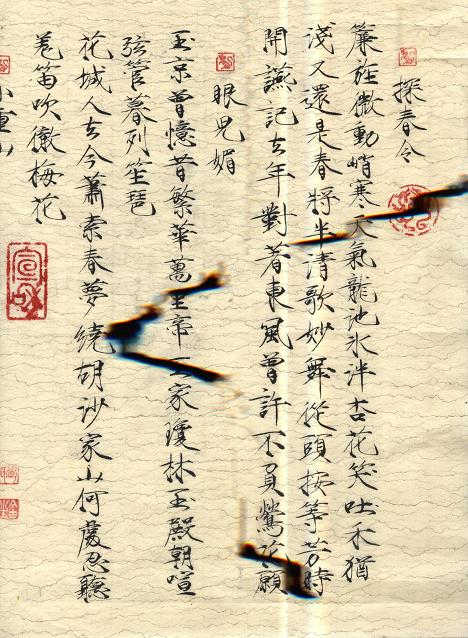 探春令
簾旌微動峭寒天氣龍池冰泮杏花笑吐禾猶
淺又還是春將半清歌妙舞從頭按等芳時
開讌記去年對著東風曾許不負鶯花願
眼兒媚
玉京曾憶昔繁華萬里帝王家瓊林玉殿朝喧
弦管暮列笙琶
花城人去今蕭索春夢繞胡沙家山何處忍聽
羌笛吹徹梅花
宣和
小重山